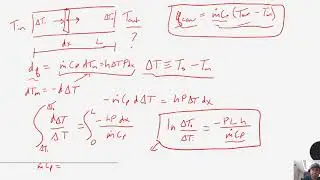 T_in ΔT_i ΔT_o T_out
dx L ?
q_conv = ṁ C_p (T_out - T_in)
dq = ṁ C_p dT_m = h ΔT P dx ΔT ≡ T_s - T_m
dT_m = -dΔT
-ṁ C_p dΔT = h P ΔT dx
∫_{ΔT_i}^{ΔT_o} dΔT/ΔT = ∫_0^L -h P dx / ṁ C_p
ln ΔT_o/ΔT_i = -P L h / ṁ C_p
ṁ C_p =